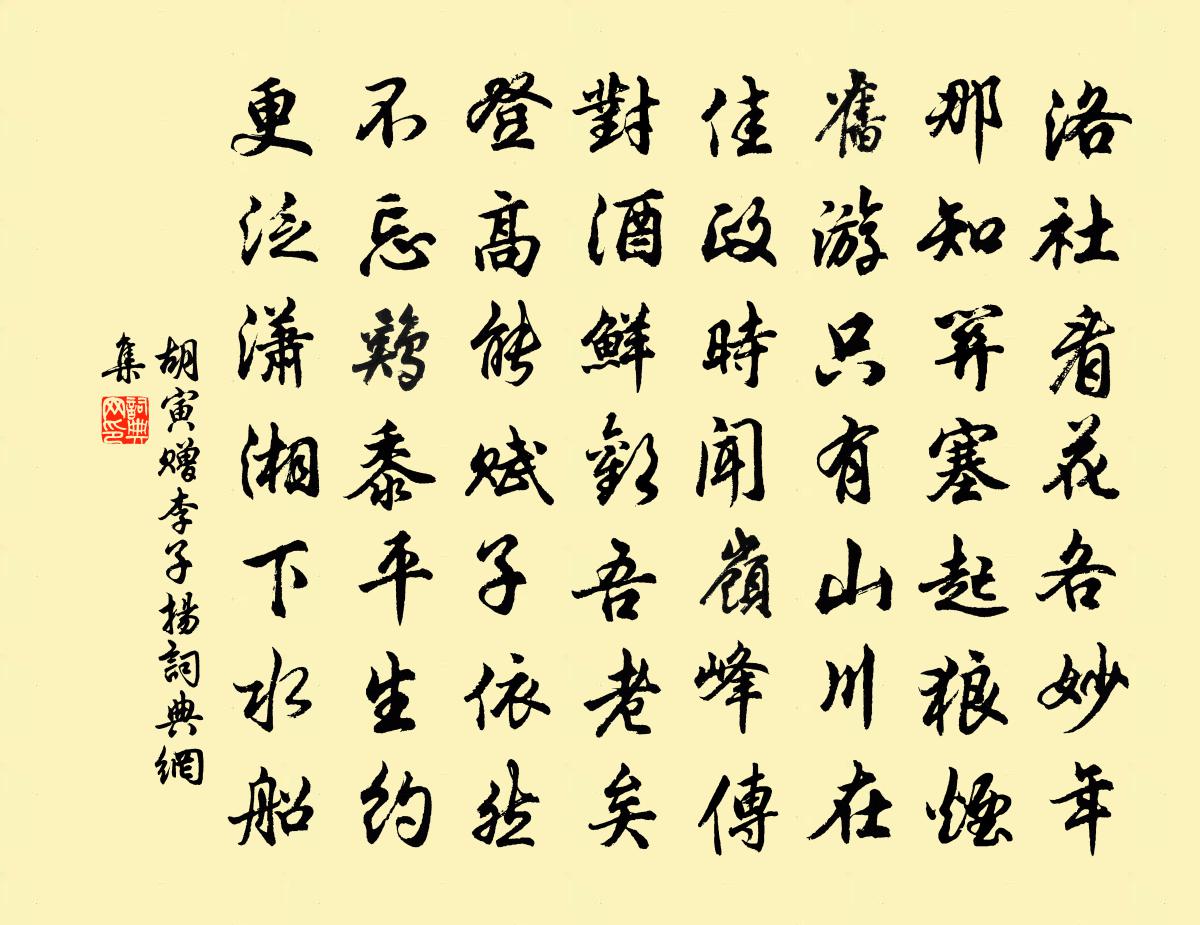 洛社看花各妙年
那知笄塞起狼煙
舊游只有山川在
佳政時聞嶺峰傳
對酒鮮歡吾老矣
登高能賦子依然
不忘鷄黍平生約
更泛瀟湘下水船
胡寅贈李子揚詞典網
集
詞典
网印